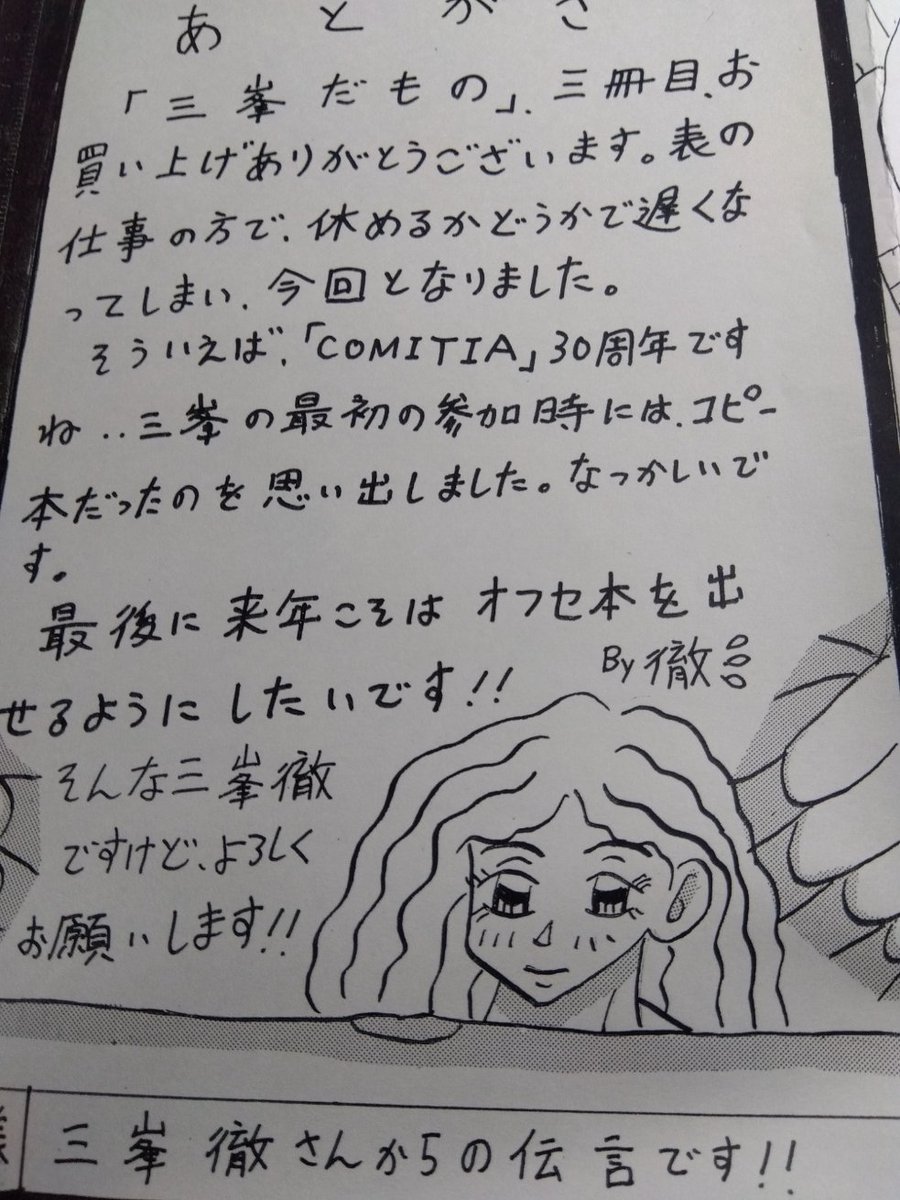 あとがき
「三峯だもの」、三冊目、お
買い上げありがとうございます。表の
仕事の方で、休めるかどうかで遅くな
ってしまい、今回となりました。
そういえば、「COMITIA」30周年です
ね..三峯の最初の参加時には、コピー
本だったのを思い出しました。なつかしいで
す。
最後に来年こそはオフセ本を出
せるようにしたいです!!
By 徹
そんな三峯徹
ですけど、よろしく
お願いします!!
様
三峯徹さんからの伝言です!!